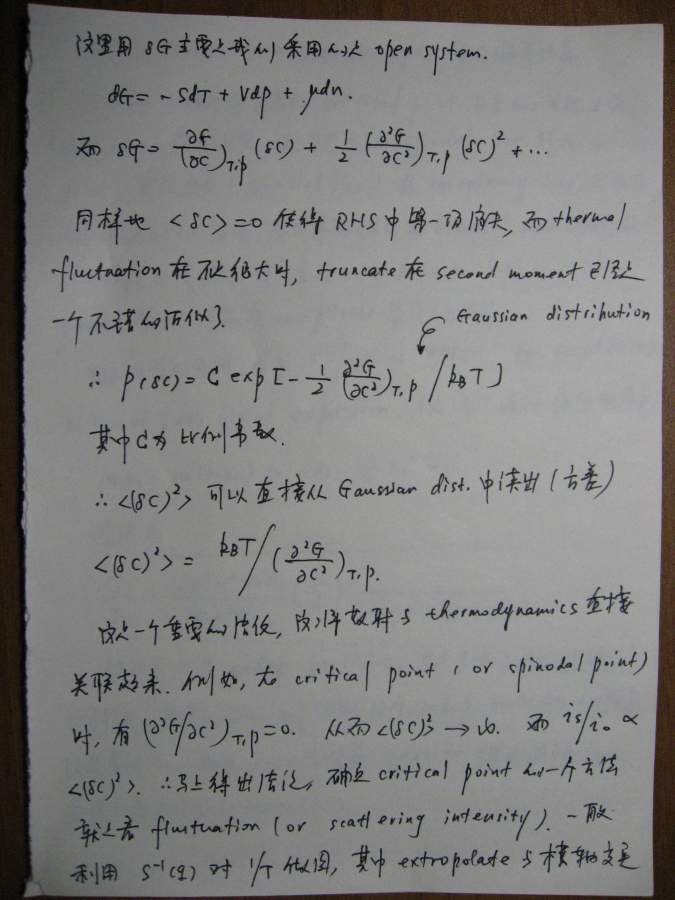 这里用 δG 主要是我们采用的是 open system.
dG = -SdT + Vdp + μdn.
而 δG = (∂G/∂C)_{T,p} (δC) + 1/2 (∂²G/∂C²)_{T,p} (δC)² + ...
同样地 <δC> = 0 使得 RHS 中第一项消失, 而 thermal
fluctuation 在不是很大时, truncate 在 second moment 已经是
一个不错的近似了.
Gaussian distribution
∴ p(δC) = C exp [ - 1/2 (∂²G/∂C²)_{T,p} / k_BT ]
其中 C 为比例常数.
∴ <(δC)²> 可以直接从 Gaussian dist. 中读出 (方差)
<(δC)²> = k_BT / (∂²G/∂C²)_{T,p}.
这是一个重要的结论, 将散射与 thermodynamics 直接
关联起来. 例如, 在 critical point (or spinodal point)
时, 有 (∂²G/∂C²)_{T,p} = 0. 从而 <(δC)²> → ∞. 而 is/i₀ ∝
<(δC)²>. ∴马上得出结论, 确定 critical point 的一个方法
就是看 fluctuation (or scattering intensity). 一般
利用 S⁻¹(q) 对 1/T 做图, 其中 extropolate 与横轴交是